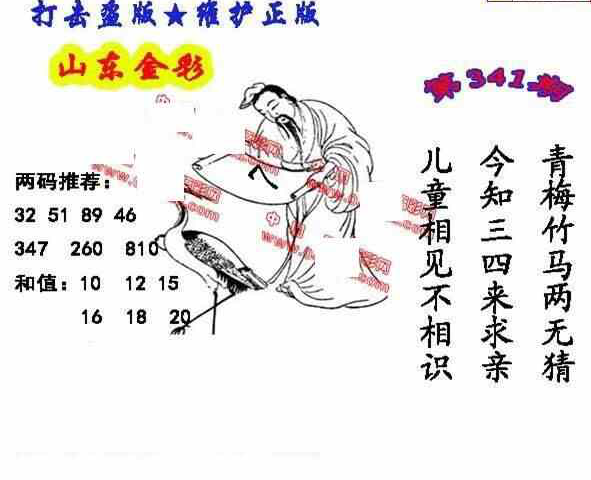 打击盗版★维护正版
山东金彩
第341期
青梅竹马两无猜
今知三四来求亲
儿童相见不相识
两码推荐：
32 51 89 46
347 260 810
和值：10 12 15
16 18 20
八